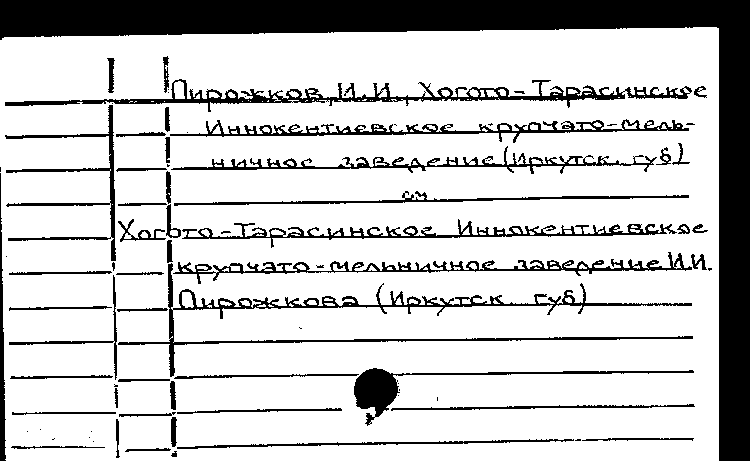 Пирожков, И.И., Хогото-Тарасинское
Иннокентиевское крупчато-мель-
ничное заведение (Иркутск. губ)
см.
Хогото-Тарасинское Иннокентиевское
крупчато-мельничное заведение И.И.
Пирожкова (Иркутск. губ)